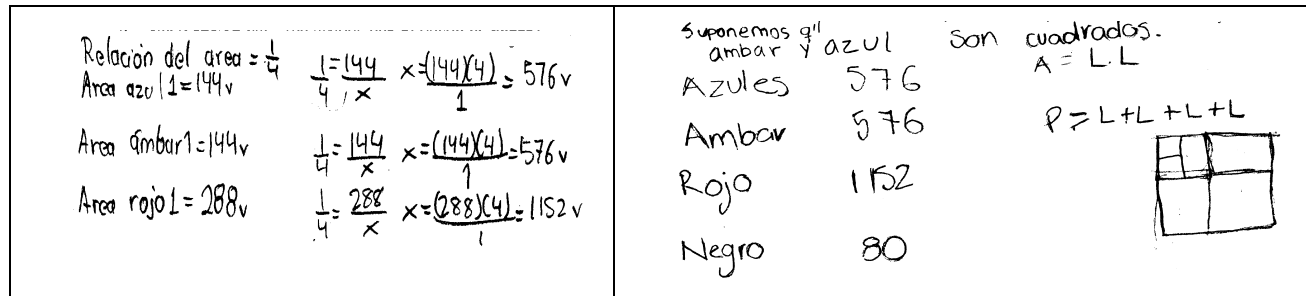 Relación del area = 1/4
Area azul 1 = 144v
1/4 = 144/x x = (144)(4)/1 = 576v
Area ámbar 1 = 144v
1/4 = 144/x x = (144)(4)/1 = 576v
Area rojo 1 = 288v
1/4 = 288/x x = (288)(4)/1 = 1152v
Suponemos q"
ambar y azul son cuadrados.
A = L.L
Azules 576
Ambar 576
P = L+L+L+L
Rojo 1152
Negro 80